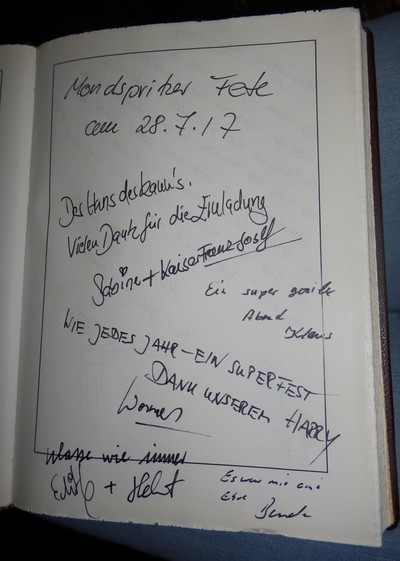 Mondspritzer Fete
am 28.7.17
Der Hans des kann's.
Vielen Dank für die Einladung
Sabine + Kaiser Franz-Josef
Ein super geiler
Abend
Klaus
WIE JEDES JAHR - EIN SUPERFEST
DANK UNSEREM HARRY
Werner
Klasse wie immer
+ Helmut
Es war mir eine
Ehre